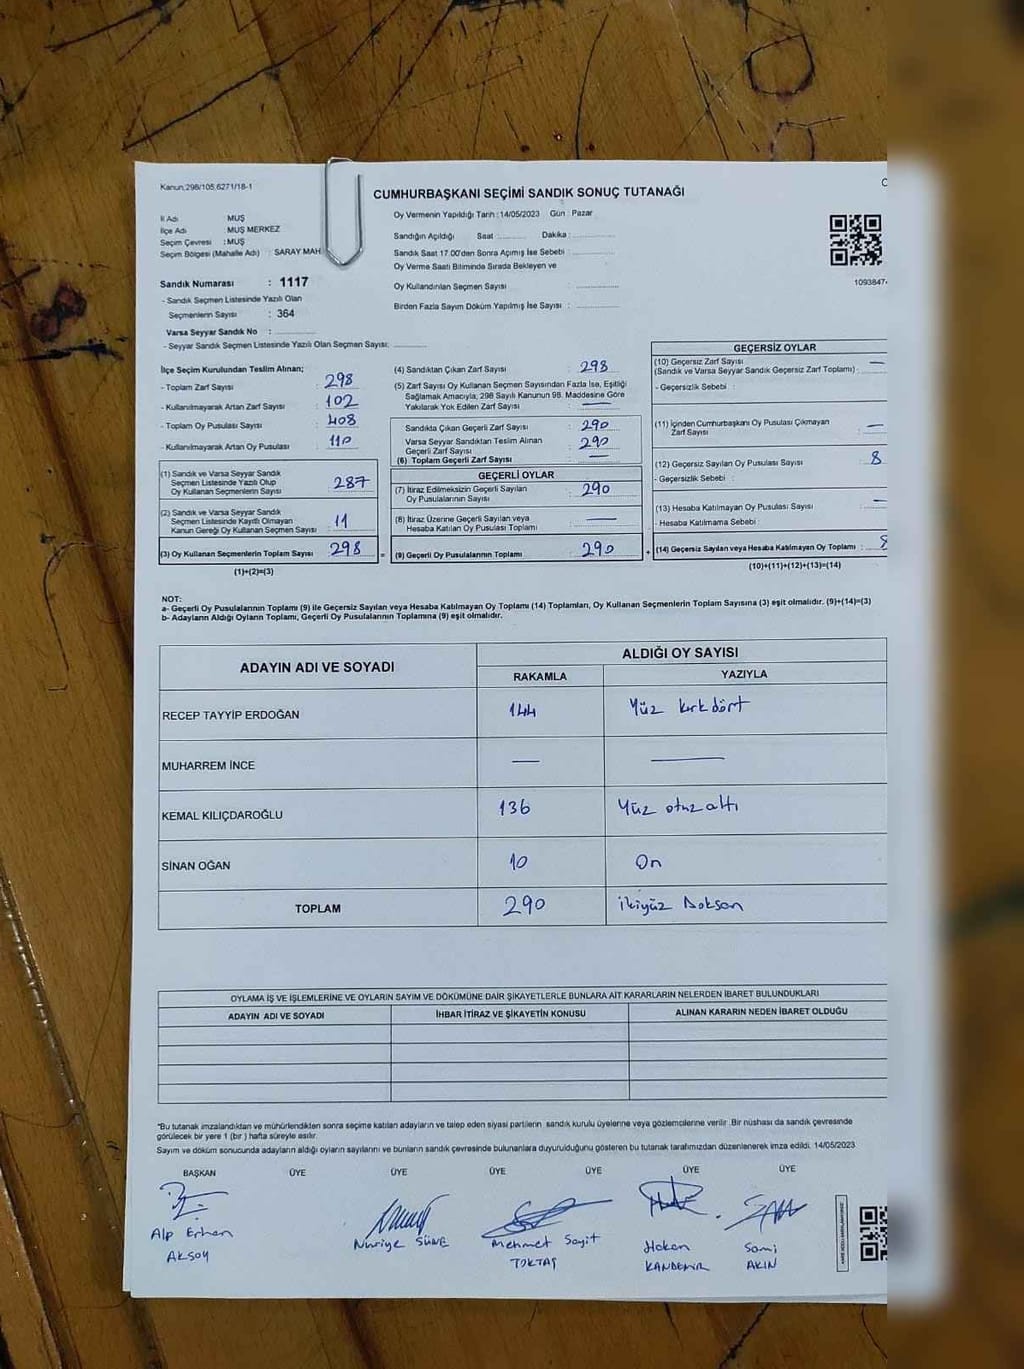 Kanun,298/105,6271/18-1
CUMHURBAŞKANI SEÇİMİ SANDIK SONUÇ TUTANAĞI
İl Adı MUŞ
İlçe Adı : MUŞ MERKEZ
Seçim Çevresi : MUŞ
Seçim Bölgesi (Mahalle Adı) : SARAY MAH
Sandık Numarası : 1117
- Sandık Seçmen Listesinde Yazılı Olan
Seçmenlerin Sayısı : 364
Varsa Seyyar Sandık No :
- Seyyar Sandık Seçmen Listesinde Yazılı Olan Seçmen Sayısı:
Oy Vermenin Yapıldığı Tarih : 14/05/2023 Gün : Pazar
Sandığın Açıldığı Saat : Dakika :
Sandık Saat 17.00'den Sonra Açımış İse Sebebi :
Oy Verme Saati Bitiminde Sırada Bekleyen ve
Oy Kullandırılan Seçmen Sayısı :
Birden Fazla Sayım Döküm Yapılmış İse Sayısı :
1093847
İlçe Seçim Kurulundan Teslim Alınan;
- Toplam Zarf Sayısı : 298
- Kullanılmayarak Artan Zarf Sayısı : 102
- Toplam Oy Pusulası Sayısı : 408
- Kullanılmayarak Artan Oy Pusulası : 110
(1) Sandık ve Varsa Seyyar Sandık
Seçmen Listesinde Yazılı Olup
Oy Kullanan Seçmenlerin Sayısı : 287
(2) Sandık ve Varsa Seyyar Sandık
Seçmen Listesinde Kayıtlı Olmayan
Kanun Gereği Oy Kullanan Seçmen Sayısı : 11
(3) Oy Kullanan Seçmenlerin Toplam Sayısı : 298
(1)+(2)=(3)
(4) Sandıktan Çıkan Zarf Sayısı : 298
(5) Zarf Sayısı Oy Kullanan Seçmen Sayısından Fazla İse, Eşitliği
Sağlamak Amacıyla, 298 Sayılı Kanunun 98. Maddesine Göre
Yakılarak Yok Edilen Zarf Sayısı : —
Sandıkta Çıkan Geçerli Zarf Sayısı : 290
Varsa Seyyar Sandıktan Teslim Alınan
Geçerli Zarf Sayısı : 290
(6) Toplam Geçerli Zarf Sayısı : —
GEÇERLİ OYLAR
(7) İtiraz Edilmeksizin Geçerli Sayılan
Oy Pusulalarının Sayısı : 290
(8) İtiraz Üzerine Geçerli Sayılan veya
Hesaba Katılan Oy Pusulası Toplamı : —
= (9) Geçerli Oy Pusulalarının Toplamı : 290
GEÇERSİZ OYLAR
(10) Geçersiz Zarf Sayısı —
(Sandık ve Varsa Seyyar Sandık Geçersiz Zarf Toplamı) :
- Geçersizlik Sebebi :
(11) İçinden Cumhurbaşkanı Oy Pusulası Çıkmayan
Zarf Sayısı : —
(12) Geçersiz Sayılan Oy Pusulası Sayısı : 8
- Geçersizlik Sebebi :
(13) Hesaba Katılmayan Oy Pusulası Sayısı : —
- Hesaba Katılmama Sebebi :
+ (14) Geçersiz Sayılan veya Hesaba Katılmayan Oy Toplamı : 8
(10)+(11)+(12)+(13)=(14)
NOT:
a- Geçerli Oy Pusulalarının Toplamı (9) ile Geçersiz Sayılan veya Hesaba Katılmayan Oy Toplamı (14) Toplamları, Oy Kullanan Seçmenlerin Toplam Sayısına (3) eşit olmalıdır. (9)+(14)=(3)
b- Adayların Aldığı Oyların Toplamı, Geçerli Oy Pusulalarının Toplamına (9) eşit olmalıdır.
ADAYIN ADI VE SOYADI ALDIĞI OY SAYISI
RAKAMLA YAZIYLA
RECEP TAYYİP ERDOĞAN 144 Yüz kırkdört
MUHARREM İNCE — —
KEMAL KILIÇDAROĞLU 136 Yüz otuz altı
SİNAN OĞAN 10 On
TOPLAM 290 ikiyüz Doksan
OYLAMA İŞ VE İŞLEMLERİNE VE OYLARIN SAYIM VE DÖKÜMÜNE DAİR ŞİKAYETLERLE BUNLARA AİT KARARLARIN NELERDEN İBARET BULUNDUKLARI
ADAYIN ADI VE SOYADI İHBAR İTİRAZ VE ŞİKAYETİN KONUSU ALINAN KARARIN NEDEN İBARET OLDUĞU
"Bu tutanak imzalandıktan ve mühürlendikten sonra seçime katılan adayların ve talep eden siyasi partilerin sandık kurulu üyelerine veya gözlemcilerine verilir. Bir nüshası da sandık çevresinde
görülecek bir yere 1 (bir) hafta süreyle asılır.
Sayım ve döküm sonucunda adayların aldığı oyların sayılarını ve bunların sandık çevresinde bulunanlara duyurulduğunu gösteren bu tutanak tarafımızdan düzenlenerek imza edildi. 14/05/2023
BAŞKAN ÜYE ÜYE ÜYE ÜYE ÜYE ÜYE
Alp Erhan Nuriye SÜNE Mehmet Sayit Hakan Sami
AKSOY TOKTAŞ KANDEMİR AKIN